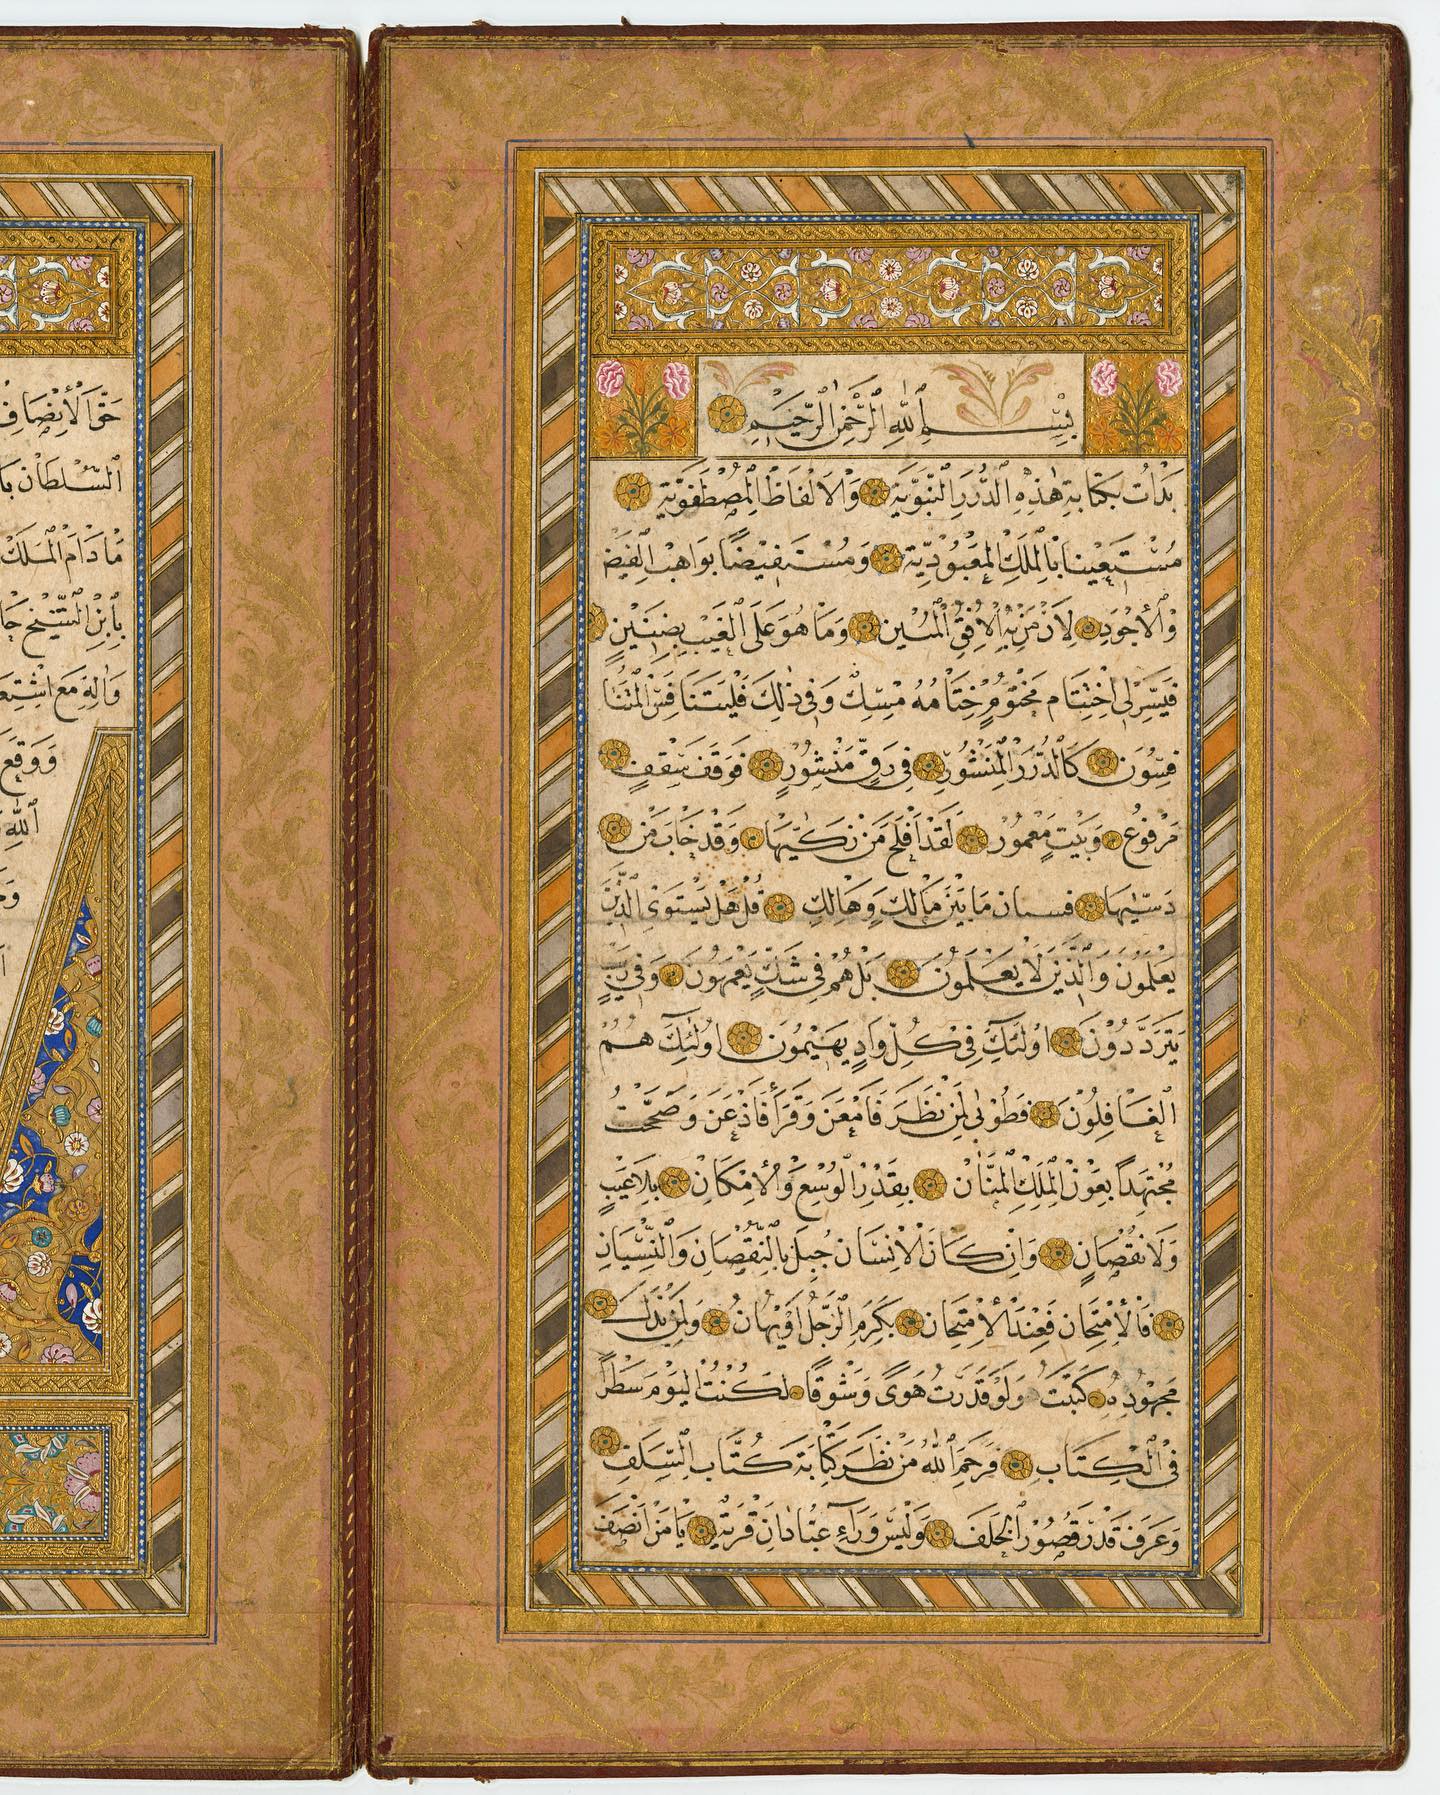 بِسْمِ اللهِ الرَّحْمٰنِ الرَّحِيمِ
بَدَأْتُ بِكِتَابَةِ هٰذِهِ الدُّرَرِ النَّبَوِيَّةِ وَالْاَلْفَاظِ الْمُصْطَفَوِيَّةِ
مُسْتَعِينًا بِالْمَلِكِ الْمَعْبُودِيَّةِ وَمُسْتَفِيضًا بِوَاهِبِ الْفَيْضِ
وَالْاَجْوَدِ لِاَنَّ مَزِيَّةَ الْاُفُقِ الْمُبِينِ وَمَا هُوَ عَلَى الْغَيْبِ بِضَنِينٍ
فَيَسِّرْ لِي اخْتِتَامَ مَخْتُومٍ خِتَامُهُ مِسْكٌ وَفِي ذٰلِكَ فَلْيَتَنَافَسِ الْمُتَنَا
فِسُونَ كَالدُّرَرِ الْمَنْثُورِ فِي رَقٍّ مَنْشُورٍ فَوْقَ سَقْفٍ
مَرْفُوعٍ وَبَيْتٍ مَعْمُورٍ لَقَدْ اَفْلَحَ مَنْ زَكّٰيهَا وَقَدْ خَابَ مَنْ
دَسّٰيهَا فسان مَا بَيْنَ مَالِكٍ وَهَالِكٍ قُلْ هَلْ يَسْتَوِي الَّذِينَ
يَعْلَمُونَ وَالَّذِينَ لَا يَعْلَمُونَ بَلْ هُمْ فِي شَكٍّ يَعْمَهُونَ وَفِي رَيْبٍ
يَتَرَدَّدُونَ اُولٰئِكَ فِي كُلِّ وَادٍ يَهِيمُونَ اُولٰئِكَ هُمُ
الْغَافِلُونَ فَطُوبٰى لِمَنْ نَظَرَ فَاَمْعَنَ وَقَرَأَ فَاَذْعَنَ وَصَحَّحْتُ
مُجْتَهِدًا بِعَوْنِ الْمَلِكِ الْمَنَّانِ بِقَدْرِ الْوُسْعِ وَالْاِمْكَانِ بِلَا عَيْبٍ
وَلَا نُقْصَانٍ وَاِنْ كَانَ الْاِنْسَانُ جُبِلَ بِالنُّقْصَانِ وَالنِّسْيَانِ
فَالْاِمْتِحَانَ فَعِنْدَ الْاِمْتِحَانِ يُكْرَمُ الرَّجُلُ اَوْ يُهَانُ وَلِمَنْ بَذَلَ
مَجْهُودَهُ كَتَبْتُ وَلَوْ قَدَرْتُ هَوًى وَشَوْقًا لَكُنْتُ الْيَوْمَ سَطْرًا
فِي الْكِتَابِ فَرَحِمَ اللهُ مَنْ نَظَرَ كِتَابَةَ كُتَّابِ السَّلَفِ
وَعَرَفَ قَدْرَ قُصُورِ الْخَلَفِ وَلَيْسَ وَرَاءَ عَبَّادَانَ قَرْيَةٌ يَا مَنْ اَنْصَفَ
حَقَّ الْاِنْصَافِ
السُّلْطَانِ
مَا دَامَ الْمُلْكُ
بِابْنِ الشَّيْخِ
وَاٰلِهِ مَعَ
وَوَقَعَ
اللهِ